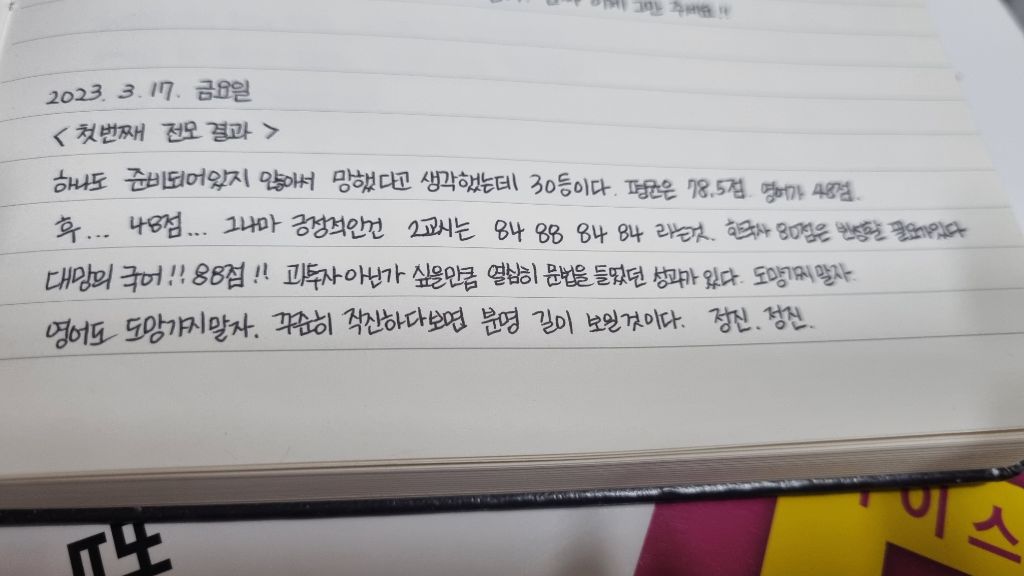 이제 그만 주세요!!
2023. 3. 17. 금요일
< 첫번째 전모 결과 >
하나도 준비되어있지 않아서 망했다고 생각했는데 30등이다. 평균은 78.5점. 영어가 48점.
후... 48점... 그나마 긍정적인건 2교시는 84 88 84 84 라는것. 한국사 80점은 반성할 필요가있다
대망의 국어!! 88점!! 과투자 아닌가 싶을만큼 열심히 문법을 들었던 성과가 있다. 도망가지말자.
영어도 도망가지말자. 꾸준히 직진하다보면 분명 길이 보일것이다. 정진. 정진.
이스